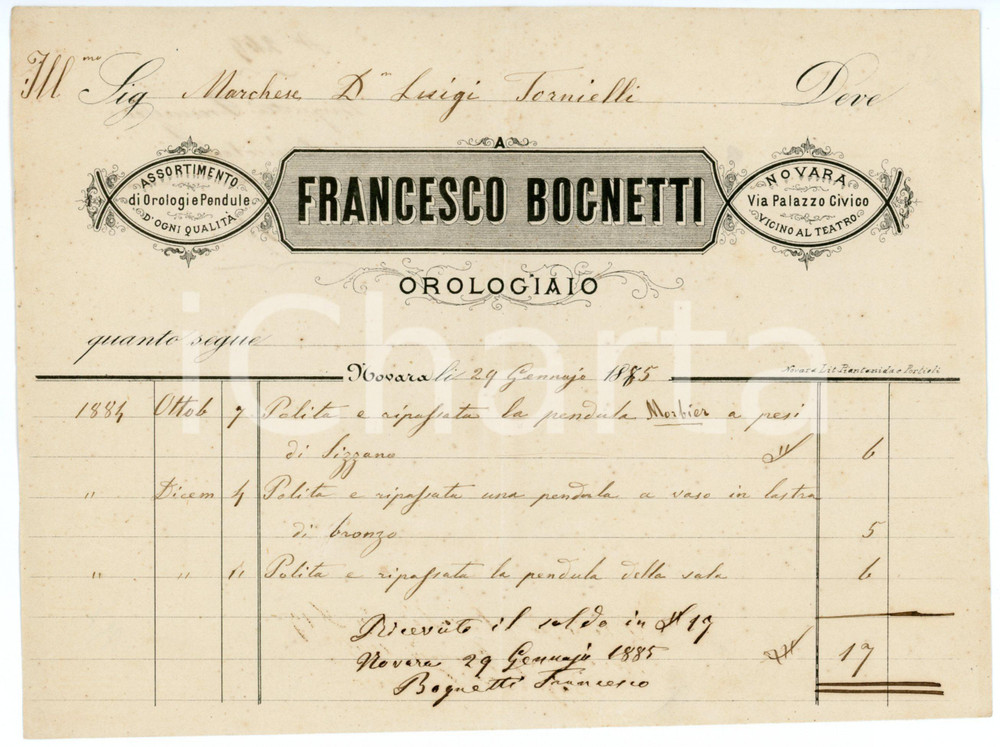 Ill.mo Sig Marchese Dn Luigi Tornielli Deve
A
ASSORTIMENTO
di Orologi e Pendule
D'OGNI QUALITÀ
FRANCESCO BOGNETTI
NOVARA
Via Palazzo Civico
VICINO AL TEATRO
OROLOGIAIO
iCharta
quanto segue
Novara li 29 Gennajo 1885
Novara Lit.
1884 Ottob 7 Polita e ripassata la pendula Morbier a pesi
di Sizzano 6
" Dicem 4 Polita e ripassata una pendula a vaso in lastra
di bronzo 5
" " " Polita e ripassata la pendula della sala 6
Ricevuto il saldo in 17
Novara 29 Gennajo 1885 17
Bognetti Francesco